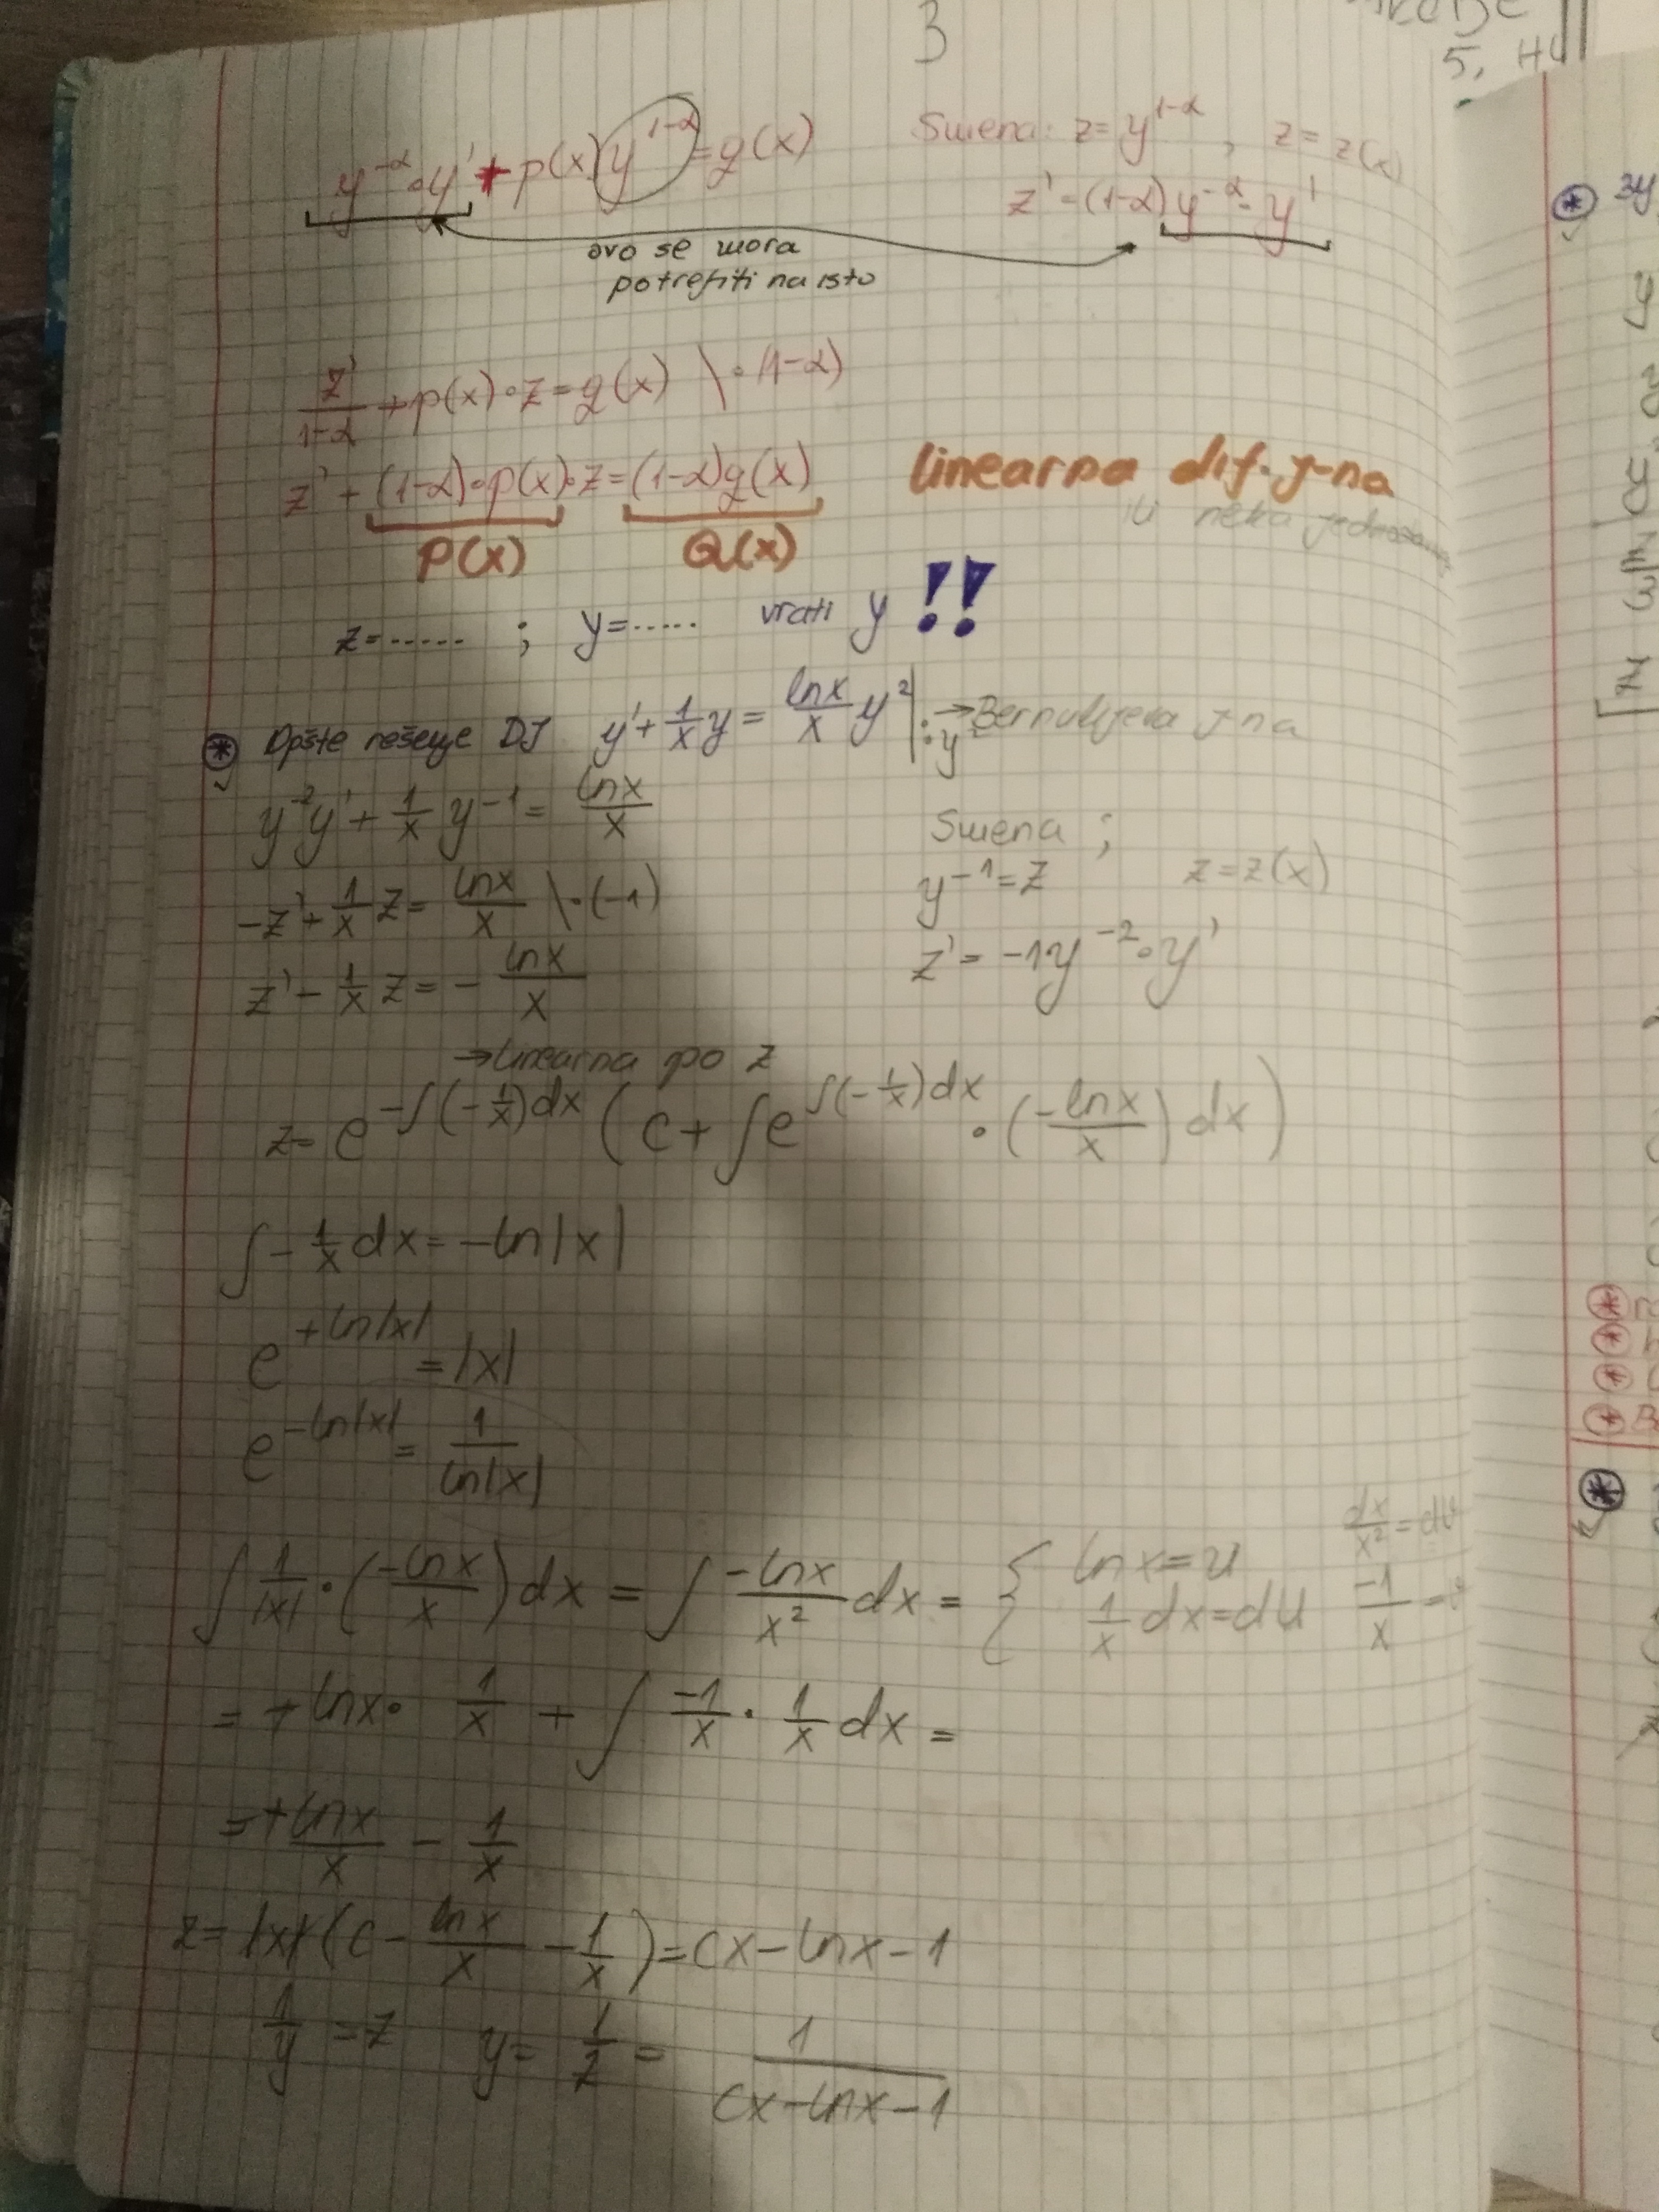 3
5, H
y^{-α}·y' + p(x) y^{1-α} = g(x)    Smena: z = y^{1-α}, z = z(x)
z' = (1-α) y^{-α}·y'
ovo se mora
potrefiti na isto
z'/(1-α) + p(x)·z = g(x) \ ·(1-α)
z' + (1-α)·p(x)·z = (1-α)g(x)    linearna dif. j-na
ili neka
P(x)    Q(x)
z=...... ; y=..... vrati y !!
⊛ Opšte rešenje DJ y' + 1/x y = lnx/x y² | : y² → Bernulijeva j-na
y^{-2}y' + 1/x y^{-1} = lnx/x    Smena ;
-z' + 1/x z = lnx/x \ ·(-1)    y^{-1} = z    z = z(x)
z' - 1/x z = - lnx/x    z' = -1y^{-2}·y'
→ linearna po z
z = e^{-∫(-1/x)dx} ( c + ∫e^{∫(-1/x)dx} · (-lnx/x) dx )
∫ - 1/x dx = -ln|x|
e^{+ln|x|} = |x|
e^{-ln|x|} = 1/ln|x|
∫ 1/|x| · (-lnx/x) dx = ∫ -lnx/x² dx = { lnx = u    dx/x² = dv
1/x dx = du    -1/x = v
= + lnx · 1/x + ∫ -1/x · 1/x dx =
= + lnx/x - 1/x
z = |x| (c - lnx/x - 1/x) = cx - lnx - 1
1/y = z    y = 1/z = 1/(cx - lnx - 1)
⊛ 3y